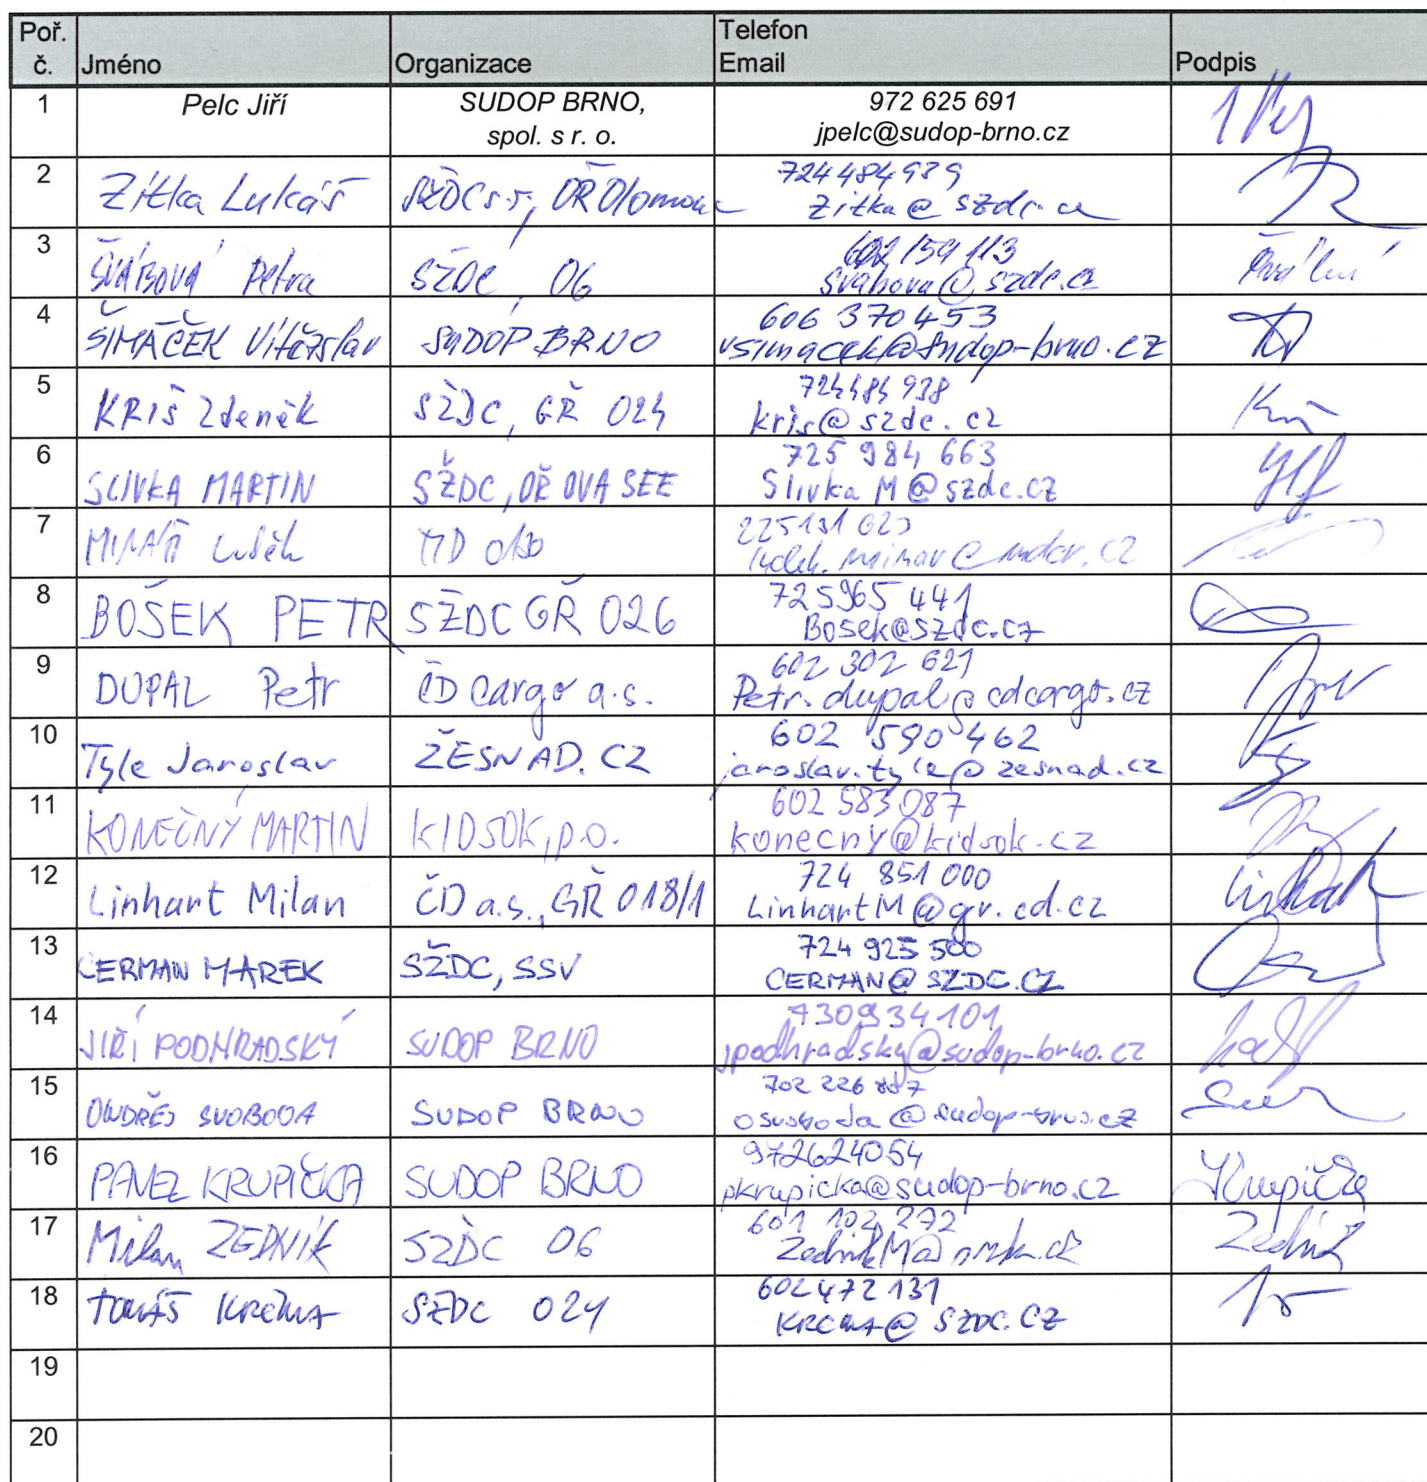 Poř. č. Jméno Organizace Telefon Email Podpis
1 Pelc Jiří SUDOP BRNO, spol. s r. o. 972 625 691
jpelc@sudop-brno.cz
2 Zítka Lukáš SŽDC s.o., OŘ Olomouc 724 484 939
zitka@szdc.cz
3 ŠVÁBOVÁ Petra SŽDC, O6 602 159 113
svabova@szdc.cz
4 ŠIMÁČEK Vítězslav SUDOP BRNO 606 370 453
vsimacek@sudop-brno.cz
5 KRIŠ Zdeněk SŽDC, GŘ O24 724484938
kris@szdc.cz
6 SLIVKA MARTIN SŽDC, OŘ OVA SEE 725 984 663
SlivkaM@szdc.cz
7 MD
8 BOŠEK PETR SŽDC GŘ O26 725965 441
Bosek@szdc.cz
9 DUPAL Petr ČD Cargo a.s. 602 302 621
Petr.dupal@cdcargo.cz
10 Tyle Jaroslav ŽESNAD.CZ 602 590 462
jaroslav.tyle@zesnad.cz
11 KONEČNÝ MARTIN KIDSOK, p.o. 602 583 087
konecny@kidsok.cz
12 Linhart Milan ČD a.s., GŘ O18/1 724 851 000
LinhartM@gr.cd.cz Linhart
13 CERMAN MAREK SŽDC, SSV 724 925 500
CERMAN@SZDC.CZ
14 JIŘÍ PODHRADSKÝ SUDOP BRNO 730934101
jpodhradsky@sudop-brno.cz
15 ONDŘEJ SVOBODA SUDOP BRNO 702 226 887
osvoboda@sudop-brno.cz
16 PAVEL KRUPIČKA SUDOP BRNO 972624054
pkrupicka@sudop-brno.cz Krupička
17 Milan ZEDNÍK SŽDC O6 601 102 272
Zedník
18 TOMÁŠ KREČMA SŽDC O24 602 472 131
19
20